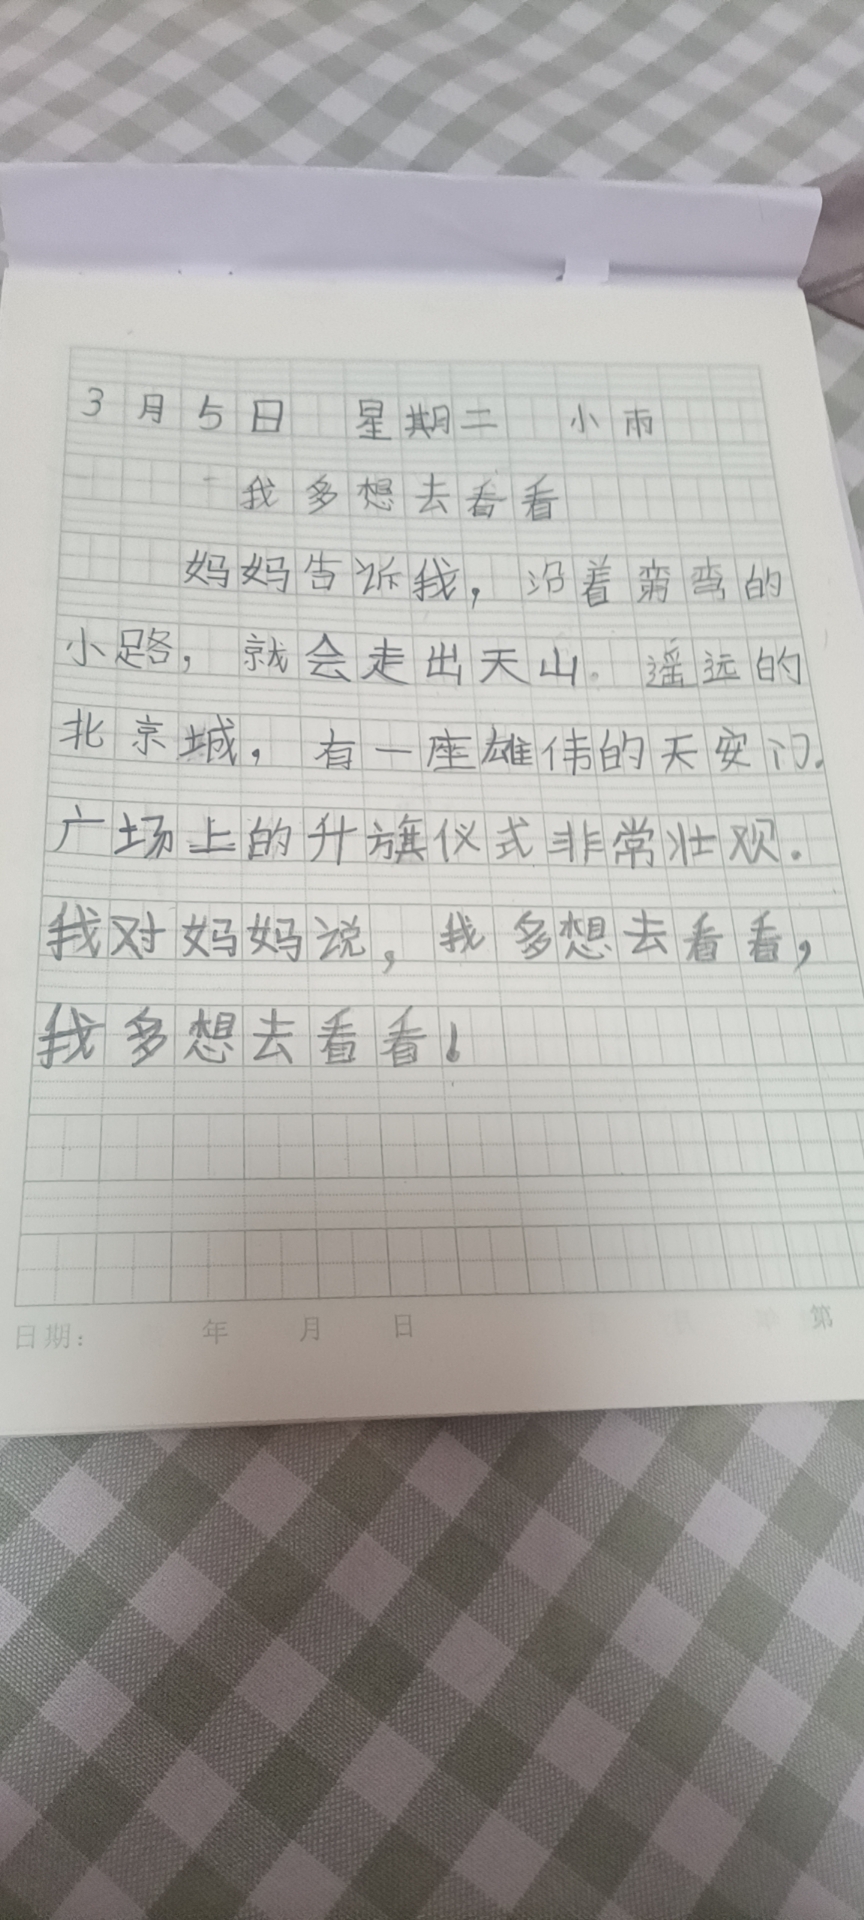 3月5日 星期二 小雨
我多想去看看
妈妈告诉我，沿着弯弯的
小路，就会走出天山。遥远的
北京城，有一座雄伟的天安门.
广场上的升旗仪式非常壮观.
我对妈妈说，我多想去看看，
我多想去看看！
日期： 年 月 日 第